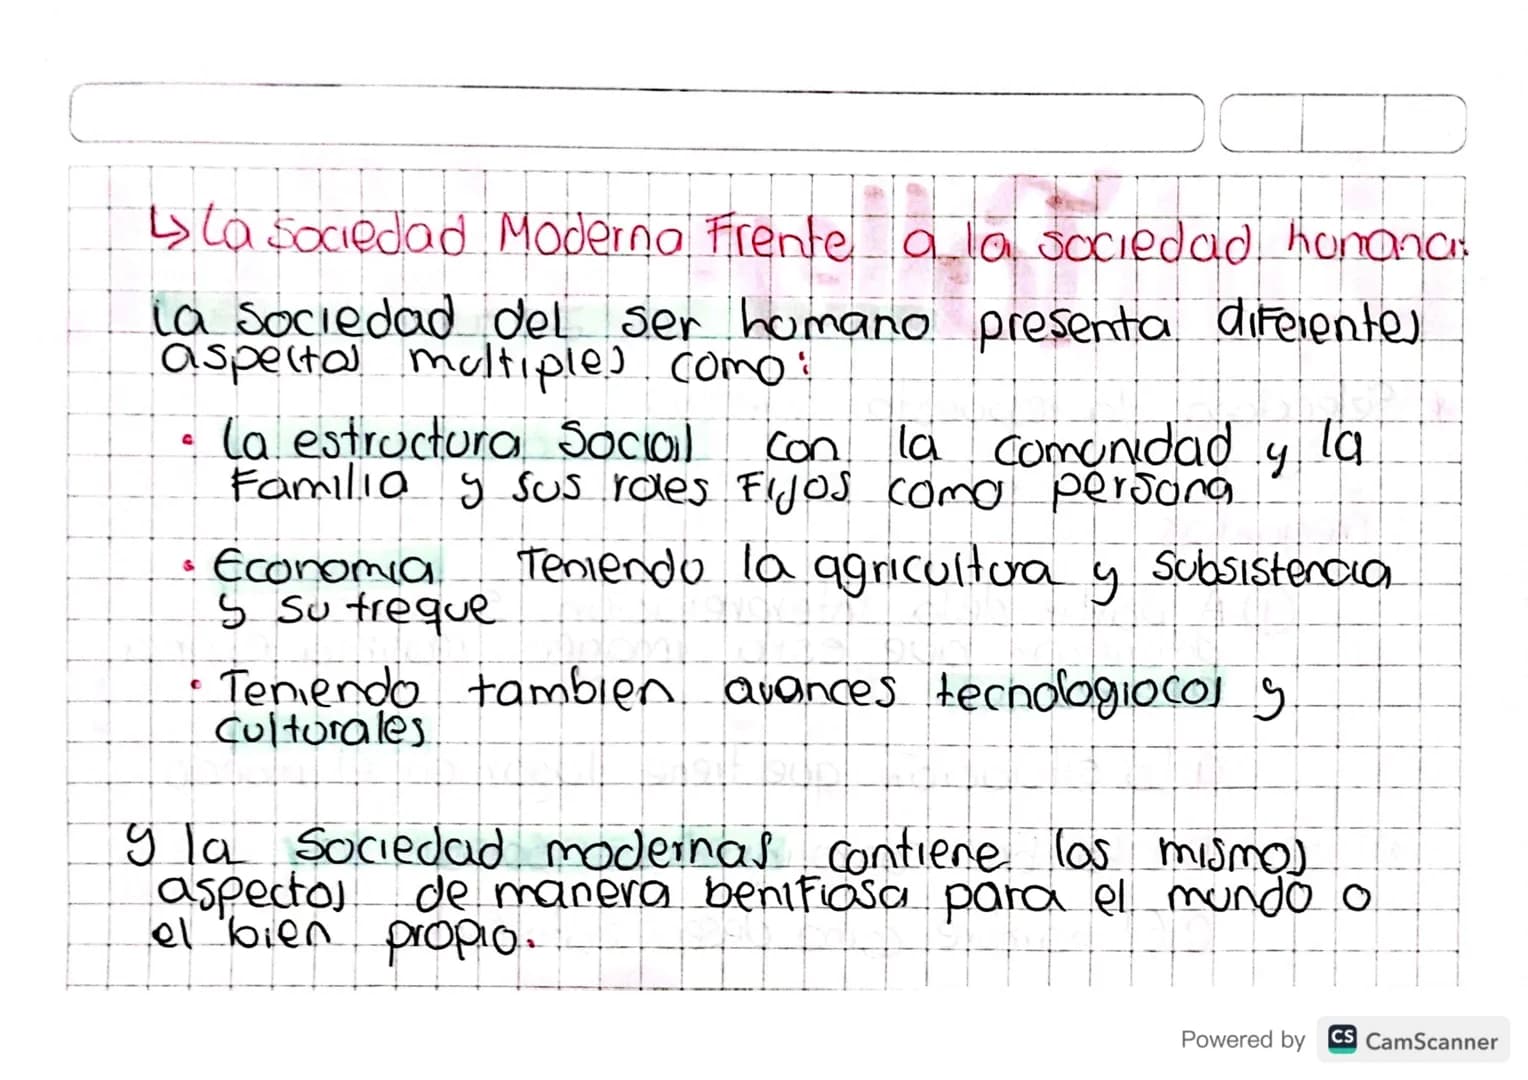 ↳ La Sociedad Moderna Frente a la sociedad humana:
La sociedad del ser humano presenta diferentes
aspectos multiples como:
• La estructura Social con la comunidad y la
Familia y sus roles Fijos como persona
• Economia Teniendo la agricultura y Subsistencia
y su treque
• Teniendo tambien avances tecnologiocos y
culturales
y la Sociedad modernas contiene los mismos
aspectos de manera benifiosa para el mundo o
el bien propio.
Powered by CS CamScanner